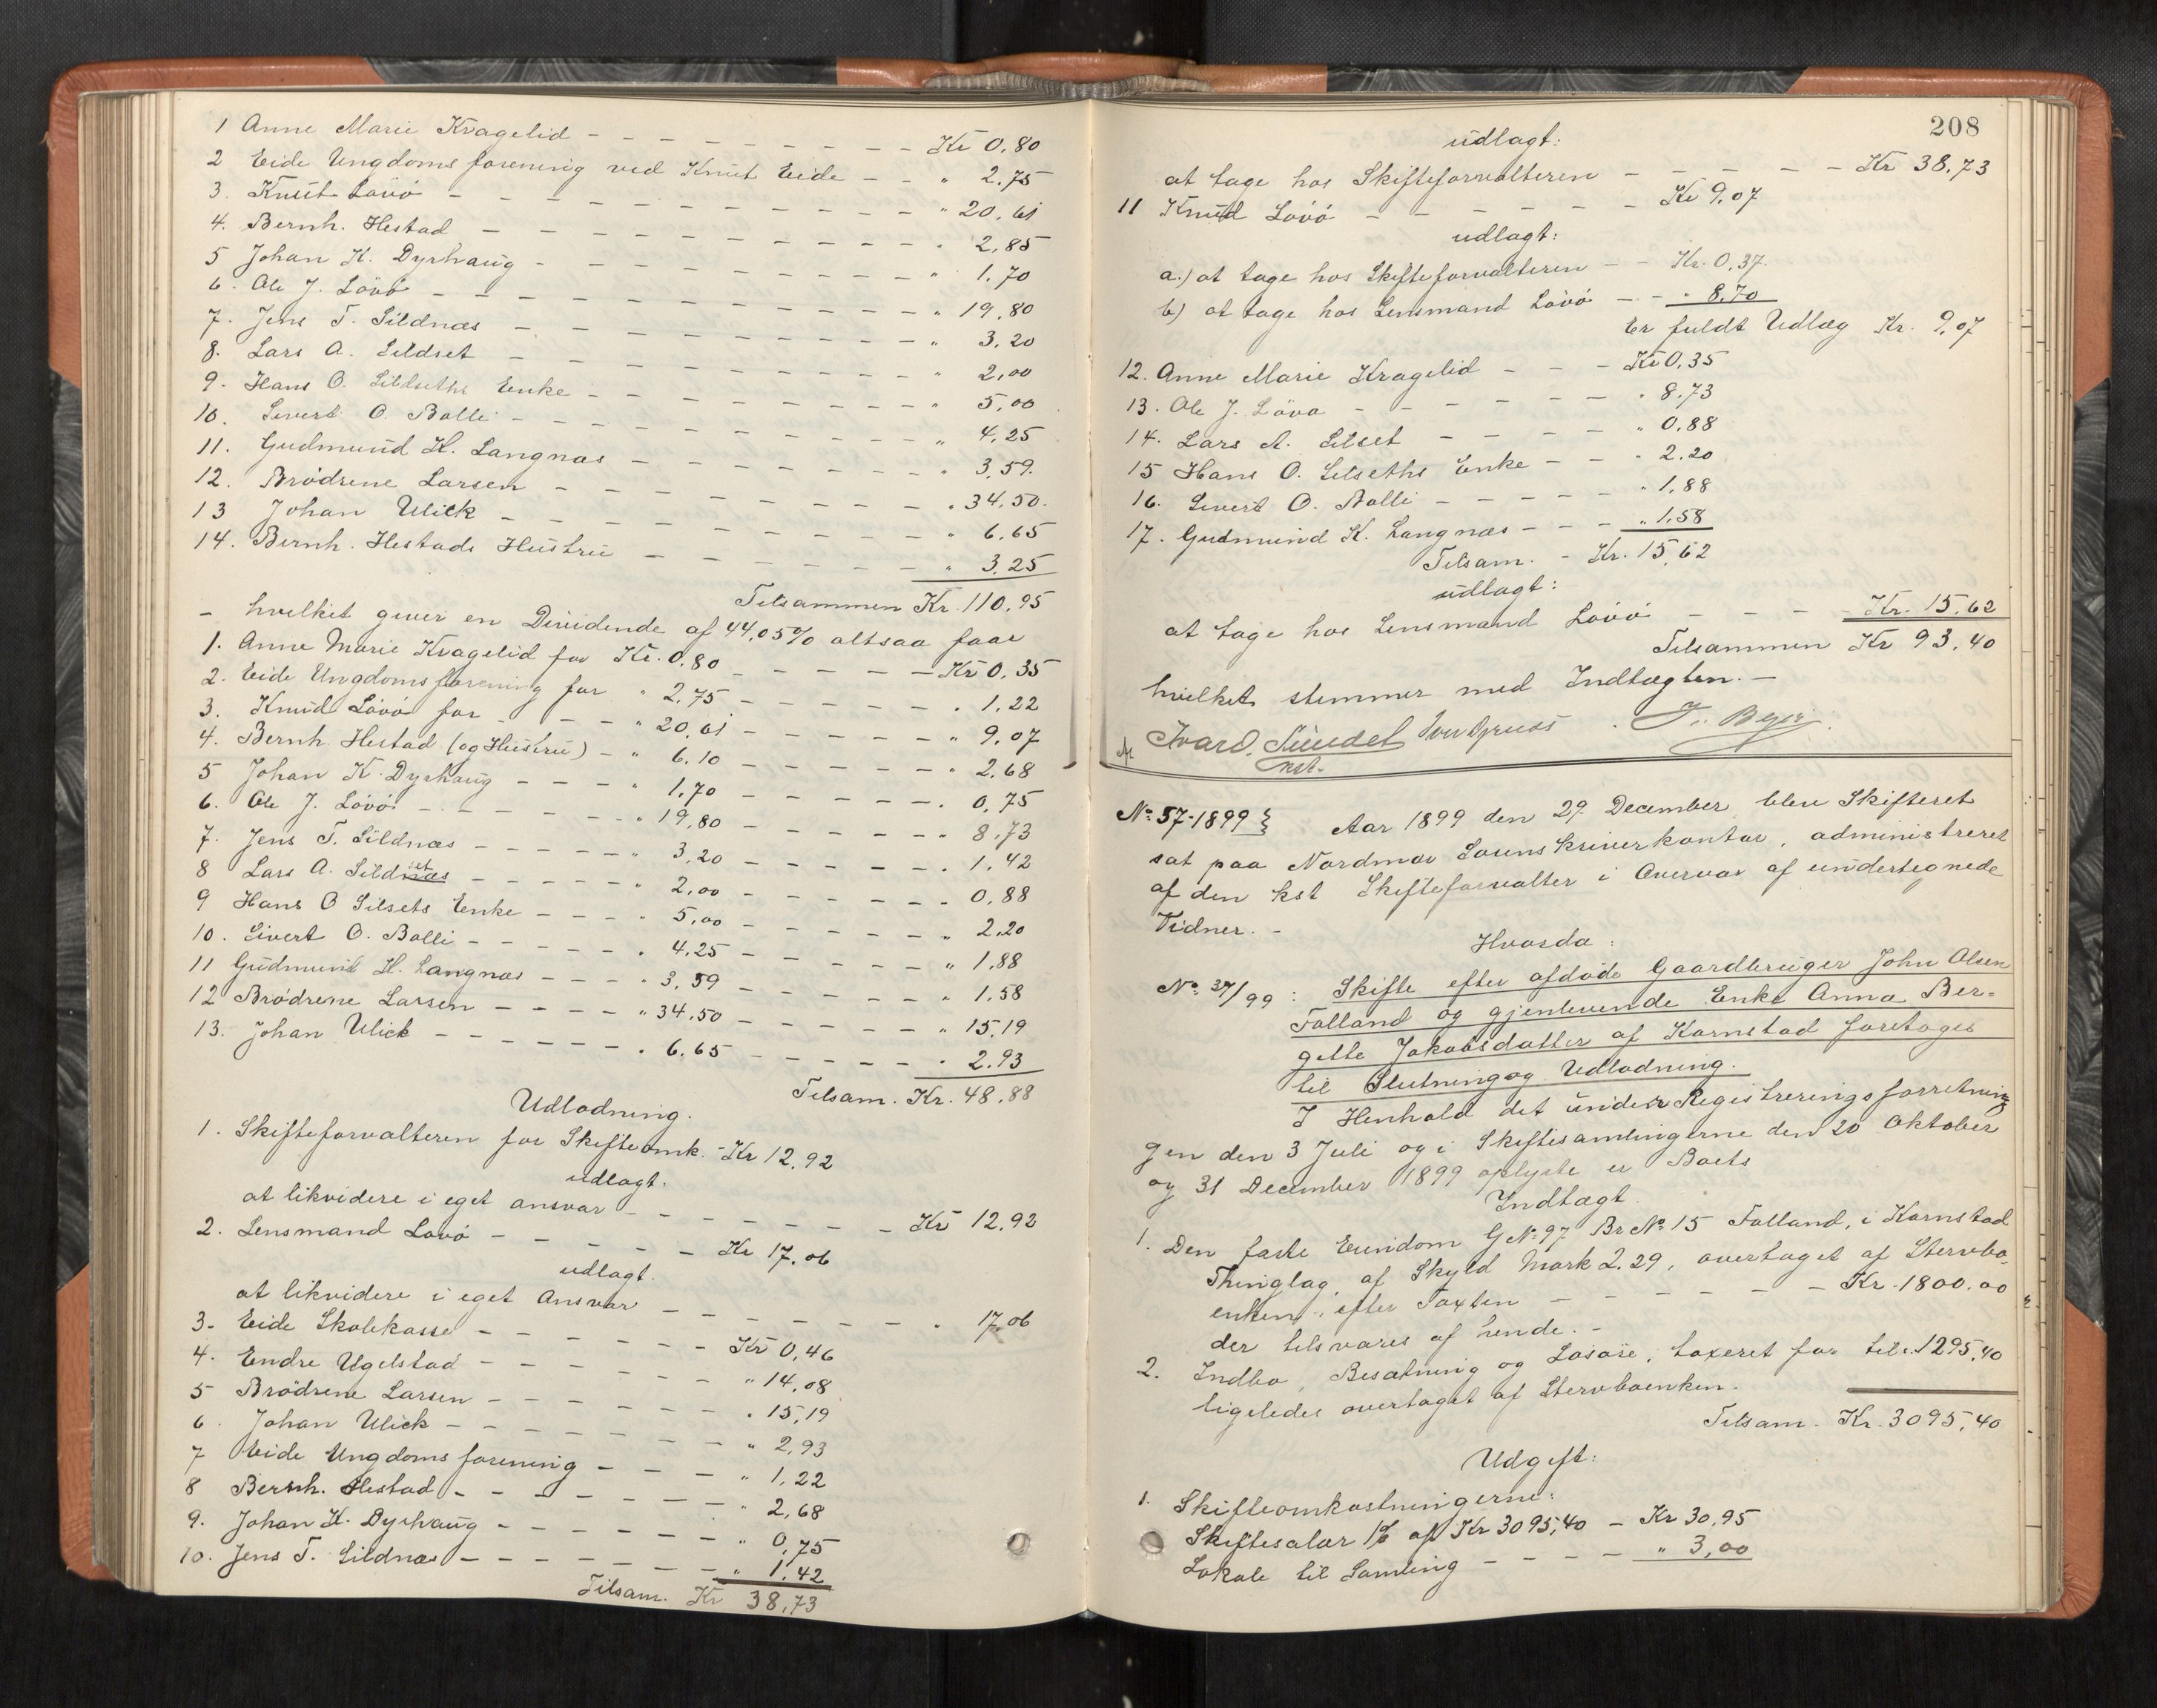 1 Anne Marie Kragelid - - - Kr 0.80
2 Eide Ungdomsforening ved Knut Eide - - " 2.75
3. Knut Lövö - - - " 20.61
4. Bernh. Hestad - - - " 2.85
5 Johan K. Dyrhaug - - - " 1.70
6. Ole J. Lövö - - - " 19.80
7. Jens T. Sildnæs - - - " 3.20
8. Lars A. Sildset - - - " 2,00
9. Hans O. Sildseths Enke - - - " 5,00
10. Sivert O. Bolli - - - " 4.25
11. Gudmund K. Langnæs - - - " 3,59.
12. Brödrene Larsen - - - " 34,50.
13 Johan Ulick - - - " 6.65
14. Bernh. Hestads Hustru - - - " 3,25
Tilsammen Kr. 110,95
- hvilket giver en Dividende af 44,05% altsaa faar
1. Anne Marie Kragelid for Kr. 0.80 - - - Kr 0.35
2. Eide Ungdomsforening for " 2.75 - - - " 1.22
3. Knud Lövö for - - - " 20,61 - - - " 9,07
4. Bernh. Hestad (og Hustru) - " 6.10 - - - " 2.68
5 Johan K. Dyrhaug - - - " 1.70 - - - " 0.75
6. Ole J. Lövö - - - " 19.80 - - - " 8.73
7. Jens T. Sildnæs - - - " 3.20 - - - " 1.42
8 Lars A. Sildnæs set - - - " 2.00 - - - " 0.88
9 Hans O Silsets Enke - - - " 5,00 - - - " 2.20
10. Sivert O. Bolli - - - " 4.25 - - - " 1.88
11 Gudmund K. Langnæs - - - " 3.59 - - - " 1.58
12 Brödrene Larsen - - - " 34.50 - - - " 15.19
13. Johan Ulick - - - " 6.65 - - - " 2.93
Tilsam. Kr. 48.88
Udlodning.
1. Skifteforvalteren for Skifteomk. - Kr 12.92
udlagt.
at likvidere i eget ansvar - - - Kr 12.92
2. Lensmand Lövö - - - Kr 17.06
udlagt.
at likvidere i eget Ansvar - - - " 17.06
3. Eide Skolekasse - - - Kr 0,46
4. Endre Ugelstad - - - " 14,08
5 Brödrene Larsen - - - " 15,19
6. Johan Ulick - - - " 2,93
7 Eide Ungdomsforening - - - " 1,22
8 Bernh. Hestad - - - " 2,68
9. Johan K. Dyrhaug - - - " 0,75
10. Jens T. Sildnæs - - - " 1.42
Tilsam. Kr 38,73
208
udlagt:
at tage hos Skifteforvalteren - - - Kr 38.73
11 Knud Lövö - - - Kr 9.07
udlagt:
a.) at tage hos Skifteforvalteren - - Kr. 0,37.
b) at tage hos Lensmand Lövö - - " 8.70
Er fuldt Udlæg Kr. 9,07
12. Anne Marie Kragelid - - - Kr 0.35
13. Ole J. Löva - - - " 8.73
14. Lars A. Silset - - - " 0.88
15 Hans O. Silseths Enke - - " 2.20
16. Sivert O. Bolli - - - " 1,88
17. Gudmund K. Langnæs - - - " 1,58
Tilsam. - Kr. 15,62
udlagt:
at tage hos Lensmand Lövö - - - Kr. 15.62
Tilsammen Kr 93.40
hvilket stemmer med Indtægten. -
Ivar D. Sundet
kst.
No 57-1899 Aar 1899 den 29 December blev Skifteret
sat paa Nordmør Sorenskriverkontor, administreret
af den kst Skifteforvalter i Overvær af undertegnede
Vidner. -
Hvorda:
No 37/99: Skifte efter afdöde Gaardbruger John Olsen
Folland og gjenlevende Enke Anna Ber-
gitte Jakobsdatter af Kornstad foretoges
til Slutning og Udlodning.
I Henhold det under Registreringsforretnin
gen den 3 Juli og i Skiftesamlingerne den 20 Oktober
og 31 December 1899 oplyste er Boets
Indtægt.
1. Den faste Eiendom GNo 97 BrNo 15 Folland, i Kornstad
Thinglag, af Skyld Mark 2.29, overtaget af Stervbo-
enken, efter Taxten - - - Kr. 1800.00
der tilsvares af hende. -
2. Indbo, Besætning og Lösöre, taxeret for til " 1295,40
ligeledes overtaget af Stervboenken.
Tilsam. Kr. 3095,40
Udgift:
1. Skifteomkostningerne:
Skiftesalær 1% af Kr 3095,40 - Kr 30,95
Lokale til Samling - - - " 3,00